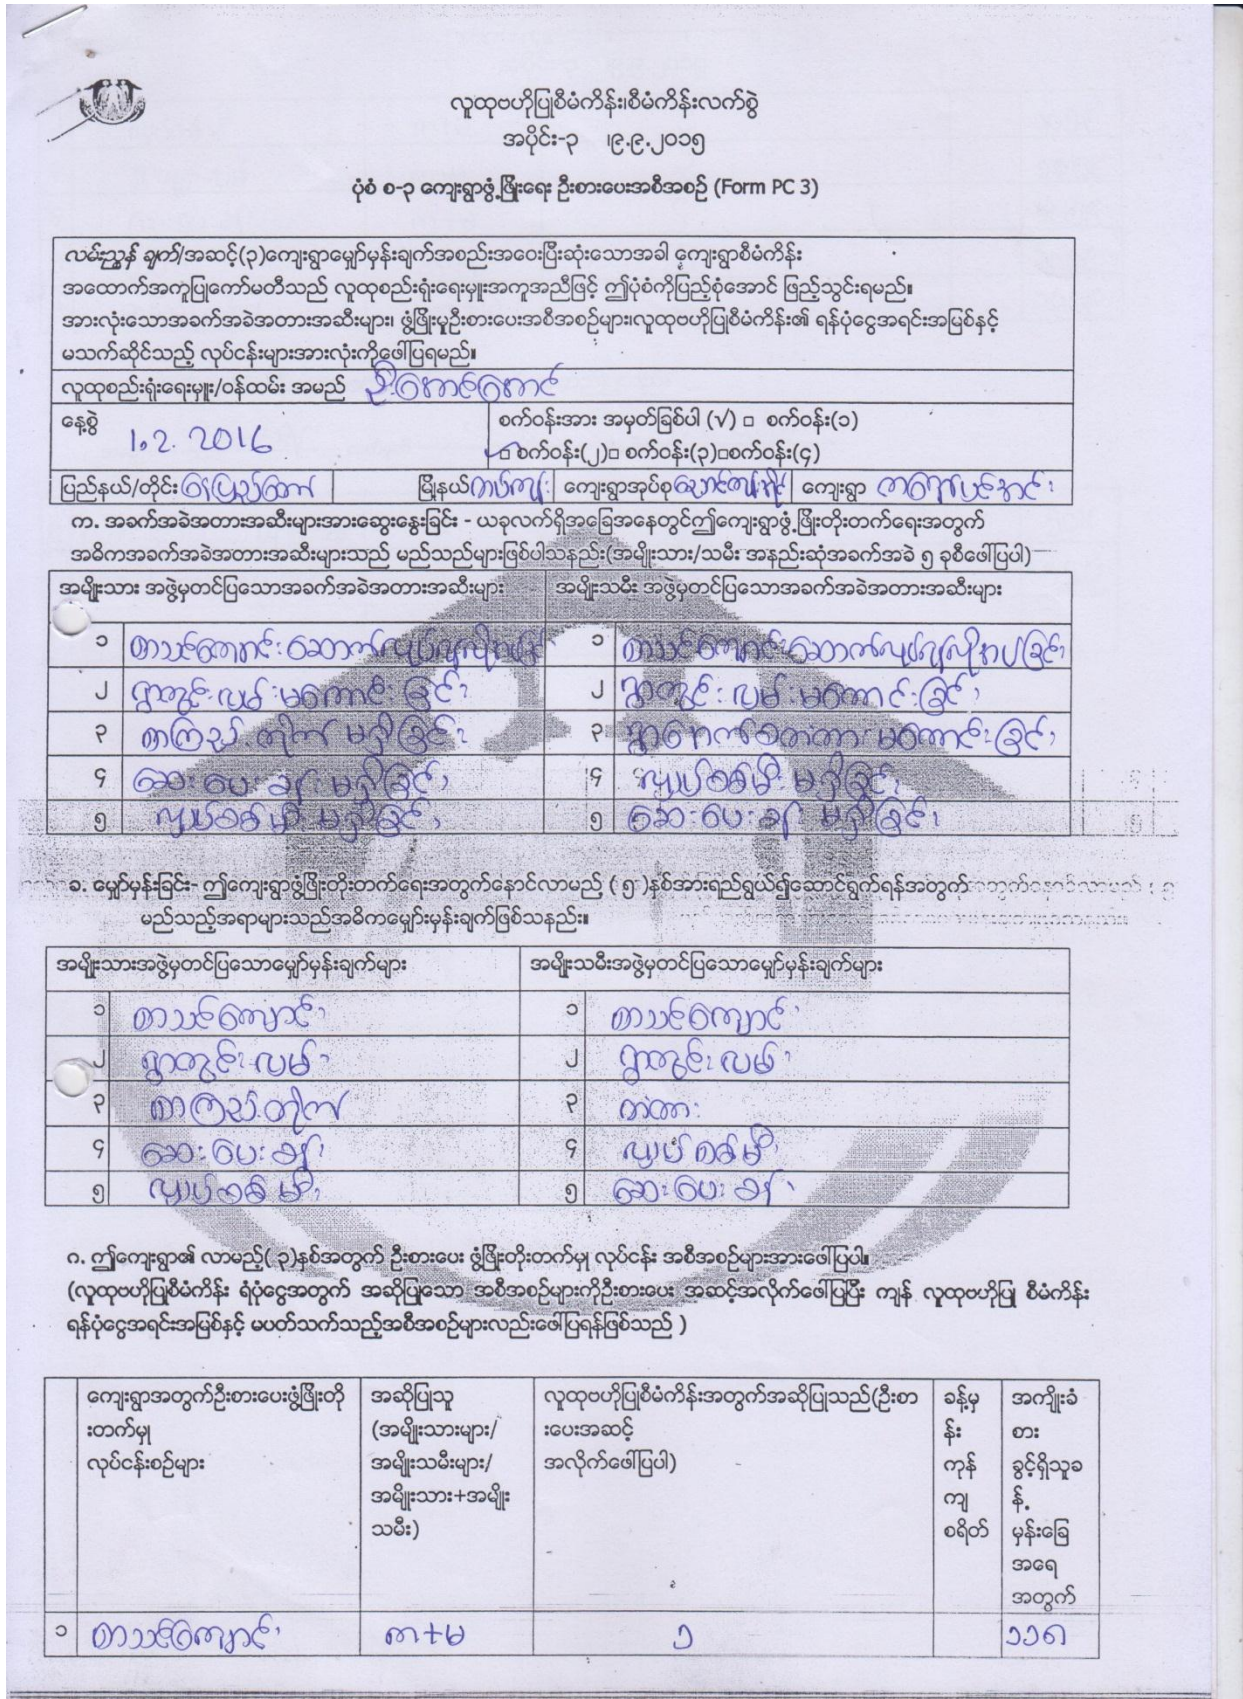 လူထုဗဟိုပြုစီမံကိန်း၊စီမံကိန်းလက်စွဲ
အပိုင်း-၃ ၊၉.၉.၂၀၁၅
ပုံစံ စ-၃ ကျေးရွာဖွံ့ဖြိုးရေး ဦးစားပေးအစီအစဉ် (Form PC 3)
လမ်းညွှန် ချက်/အဆင့်(၃)ကျေးရွာမျှော်မှန်းချက်အစည်းအဝေးပြီးဆုံးသောအခါ ကျေးရွာစီမံကိန်း
အထောက်အကူပြုကော်မတီသည် လူထုစည်းရုံးရေးမှူးအကူအညီဖြင့် ဤပုံစံကိုပြည့်စုံအောင် ဖြည့်သွင်းရမည်။
အားလုံးသောအခက်အခဲအတားအဆီးများ၊ ဖွံ့ဖြိုးမှုဦးစားပေးအစီအစဉ်များ၊လူထုဗဟိုပြုစီမံကိန်း၏ ရန်ပုံငွေအရင်းအမြစ်နှင့်
မသက်ဆိုင်သည့် လုပ်ငန်းများအားလုံးကိုဖေါ်ပြရမည်။
လူထုစည်းရုံးရေးမှူး/ဝန်ထမ်း အမည် ဦးအောင်အောင်
နေ့စွဲ 1.2.2016 စက်ဝန်းအား အမှတ်ခြစ်ပါ (√) □ စက်ဝန်း(၁)
☑ စက်ဝန်း(၂)□ စက်ဝန်း(၃)□စက်ဝန်း(၄)
ပြည်နယ်/တိုင်း နေပြည်တော် မြို့နယ် တပ်ကုန်း ကျေးရွာအုပ်စု ကျေးရွာ
က. အခက်အခဲအတားအဆီးများအားဆွေးနွေးခြင်း - ယခုလက်ရှိအခြေအနေတွင်ဤကျေးရွာဖွံ့ဖြိုးတိုးတက်ရေးအတွက်
အဓိကအခက်အခဲအတားအဆီးများသည် မည်သည်များဖြစ်ပါသနည်း(အမျိုးသား/သမီး အနည်းဆုံးအခက်အခဲ ၅ ခုစီဖေါ်ပြပါ)
အမျိုးသား အဖွဲ့မှတင်ပြသောအခက်အခဲအတားအဆီးများ အမျိုးသမီး အဖွဲ့မှတင်ပြသောအခက်အခဲအတားအဆီးများ
၁ စာသင်ကျောင်းဆောက်လုပ်ရန်လိုအပ်ခြင်း ၁ စာသင်ကျောင်းဆောက်လုပ်ရန်လိုအပ်ခြင်း၊
၂ ရွာတွင်းလမ်းမကောင်းခြင်း၊ ၂ ရွာတွင်းလမ်းမကောင်းခြင်း၊
၃ စာကြည့်တိုက်မရှိခြင်း၊ ၃ ရွာနောက်ဖေးတံတားမကောင်းခြင်း၊
၄ ဆေးပေးခန်းမရှိခြင်း၊ ၄ လျှပ်စစ်မီးမရှိခြင်း၊
၅ လျှပ်စစ်မီးမရှိခြင်း၊ ၅ ဆေးပေးခန်းမရှိခြင်း၊
ခ. မျှော်မှန်းခြင်း- ဤကျေးရွာဖွံ့ဖြိုးတိုးတက်ရေးအတွက်နောင်လာမည် (၅)နှစ်အားရည်ရွယ်၍ဆောင်ရွက်ရန်အတွက်
မည်သည့်အရာများသည်အဓိကမျှော်မှန်းချက်ဖြစ်သနည်း။
အမျိုးသားအဖွဲ့မှတင်ပြသောမျှော်မှန်းချက်များ အမျိုးသမီးအဖွဲ့မှတင်ပြသောမျှော်မှန်းချက်များ
၁ စာသင်ကျောင်း၊ ၁ စာသင်ကျောင်း၊
၂ ရွာတွင်းလမ်း ၂ ရွာတွင်းလမ်း၊
၃ စာကြည့်တိုက် ၃ တံတား
၄ ဆေးပေးခန်း၊ ၄ လျှပ်စစ်မီး၊
၅ လျှပ်စစ်မီး၊ ၅ ဆေးပေးခန်း၊
ဂ. ဤကျေးရွာ၏ လာမည့်(၃)နှစ်အတွက် ဦးစားပေး ဖွံ့ဖြိုးတိုးတက်မှု လုပ်ငန်း အစီအစဉ်များအားဖေါ်ပြပါ။
(လူထုဗဟိုပြုစီမံကိန်း ရံပုံငွေအတွက် အဆိုပြုသော အစီအစဉ်များကိုဦးစားပေး အဆင့်အလိုက်ဖေါ်ပြပြီး ကျန် လူထုဗဟိုပြု စီမံကိန်း
ရန်ပုံငွေအရင်းအမြစ်နှင့် မပတ်သက်သည့်အစီအစဉ်များလည်းဖေါ်ပြရန်ဖြစ်သည် )
ကျေးရွာအတွက်ဦးစားပေးဖွံ့ဖြိုးတိုးတက်မှု လုပ်ငန်းစဉ်များ
အဆိုပြုသူ (အမျိုးသားများ/အမျိုးသမီးများ/အမျိုးသား+အမျိုးသမီး)
လူထုဗဟိုပြုစီမံကိန်းအတွက်အဆိုပြုသည်(ဦးစားပေးအဆင့် အလိုက်ဖေါ်ပြပါ)
ခန့်မှန်းကုန်ကျစရိတ်
အကျိုးခံစားခွင့်ရှိသူခန့်မှန်းခြေအရေအတွက်
၁ စာသင်ကျောင်း၊ ကျ+မ ၁ ၁၁၈